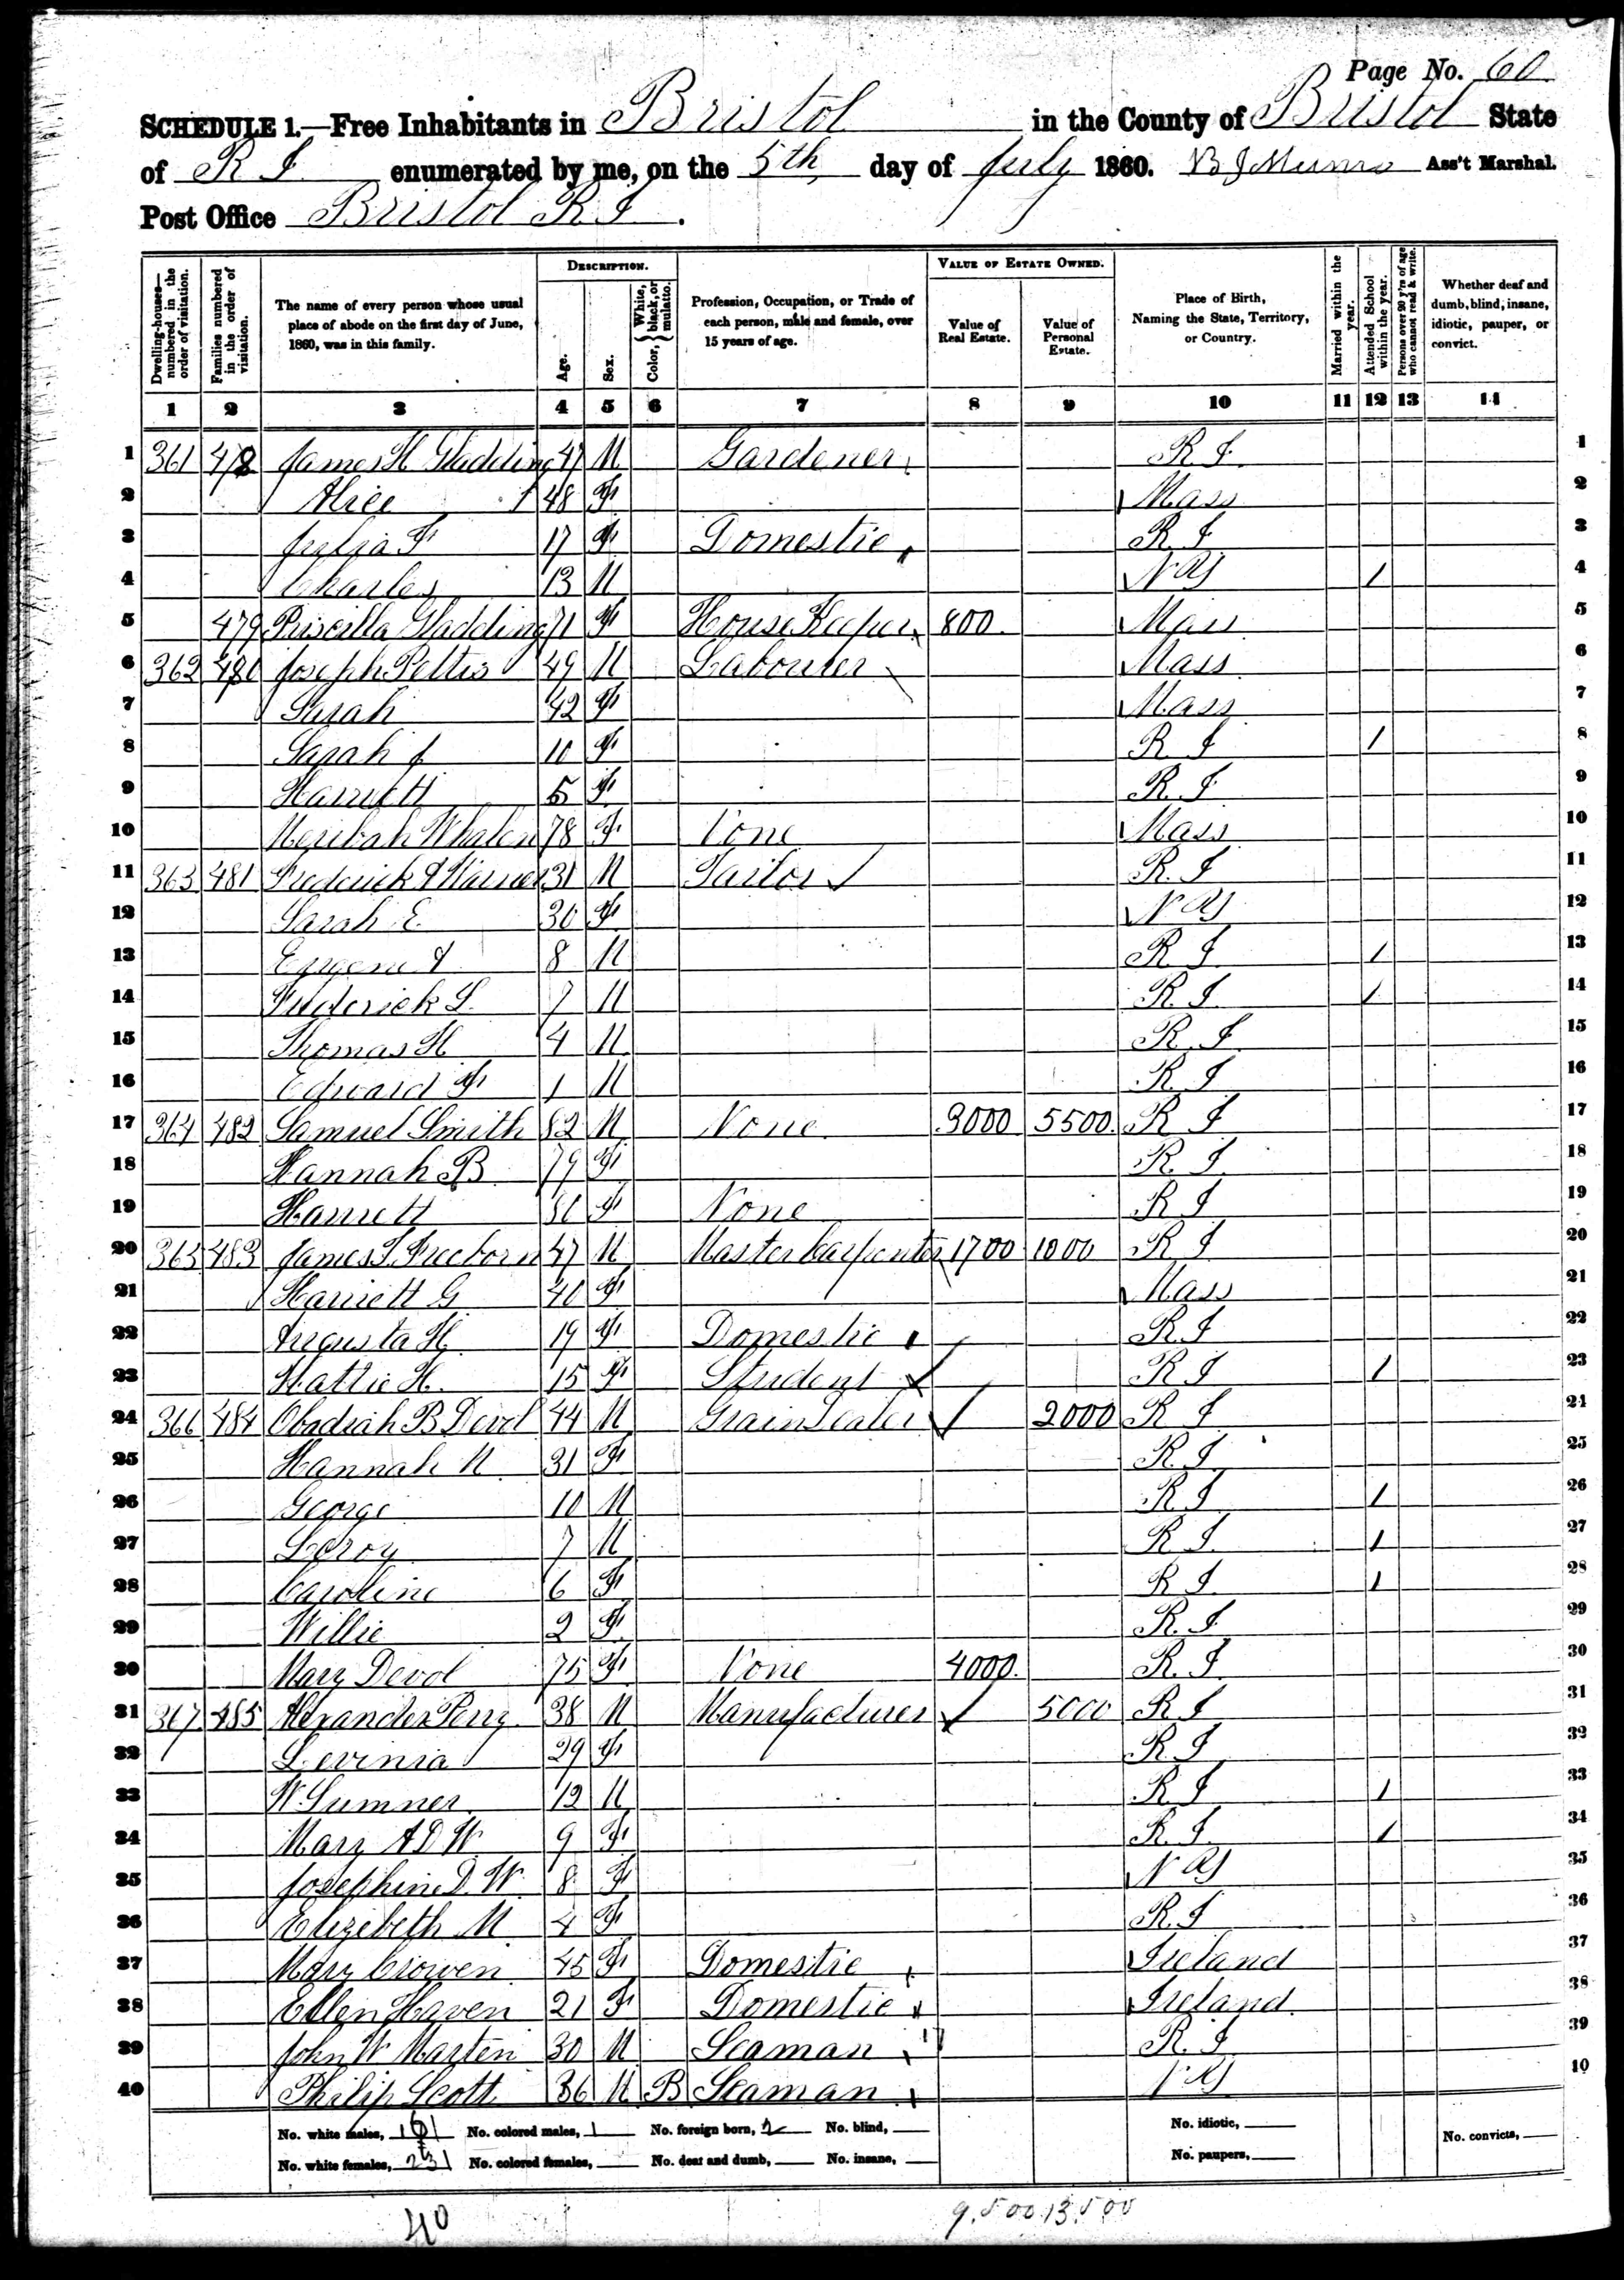 Page No. 60
SCHEDULE 1.—Free Inhabitants in Bristol in the County of Bristol State
of R I enumerated by me, on the 5th day of July 1860. B J Munro Ass't Marshal.
Post Office Bristol R I.
DESCRIPTION. VALUE OF ESTATE OWNED.
Dwelling-houses—numbered in the order of visitation. Families numbered in the order of visitation. The name of every person whose usual place of abode on the first day of June, 1860, was in this family. Age. Sex. Color, White, black, or mulatto. Profession, Occupation, or Trade of each person, male and female, over 15 years of age. Value of Real Estate. Value of Personal Estate. Place of Birth, Naming the State, Territory, or Country. Married within the year. Attended School within the year. Persons over 20 y'rs of age who cannot read & write. Whether deaf and dumb, blind, insane, idiotic, pauper, or convict.
1 2 3 4 5 6 7 8 9 10 11 12 13 14
1 361 478 James H Gladding 47 M Gardener R I. 1
2 Alice 48 F Mass 2
3 Julia F 17 F Domestic R I 3
4 Charles 13 M N Y / 4
5 479 Priscilla Gladding 71 F House Keeper 800. Mass 5
6 362 480 Joseph Pettis 49 M Labourer Mass 6
7 Sarah 42 F Mass 7
8 Sarah J 10 F R I / 8
9 Harriett 5 F R. I 9
10 Meribah Whalen 78 F None Mass 10
11 363 481 Frederick A Warner 31 M Tailor R. I 11
12 Sarah E. 30 F N Y 12
13 Eugene A 8 M R I. / 13
14 Frederick L. 7 M R I. / 14
15 Thomas H 4 M R. I 15
16 Edward F 1 M R I 16
17 364 482 Samuel Smith 82 M None 3000 5500. R I 17
18 Hannah B 79 F R. I. 18
19 Harriett F None R I 19
20 365 483 James T. Freeborn 47 M Master Carpenter 1700 1000 R I 20
21 Harriett G 40 F Mass 21
22 Augusta H 19 F Domestic R. I 22
23 Hattie H. 15 F Student R I / 23
24 366 484 Obadiah B Devol 44 M Grain Dealer 2000 R I 24
25 Hannah M 31 F R. I 25
26 George 10 M R I / 26
27 Leroy 7 M R I. / 27
28 Caroline 6 F R I. / 28
29 Willie 2 F R. I. 29
30 Mary Devol 75 F None 4000. R. I. 30
31 367 485 Alexander Perry 38 M Manufacturer 5000 R I 31
32 Levinia 29 F R. I 32
33 W. Sumner 12 M R I / 33
34 Mary A D W 9 F R. I. / 34
35 Josephine D. W. 8 F N Y 35
36 Elizebeth M 4 F R. I 36
37 Mary Crowen 45 F Domestic Ireland 37
38 Ellen Haven 21 F Domestic Ireland. 38
39 John W Marten 30 M Seaman R. I 39
40 Philip Scott 36 M B Seaman N Y 40
No. white males, No. colored males, 1 No. foreign born, 2 No. blind, No. idiotic, No. convicts,
No. white females, No. colored females, No. deaf and dumb, No. insane, No. paupers,
40 9.500 13.500